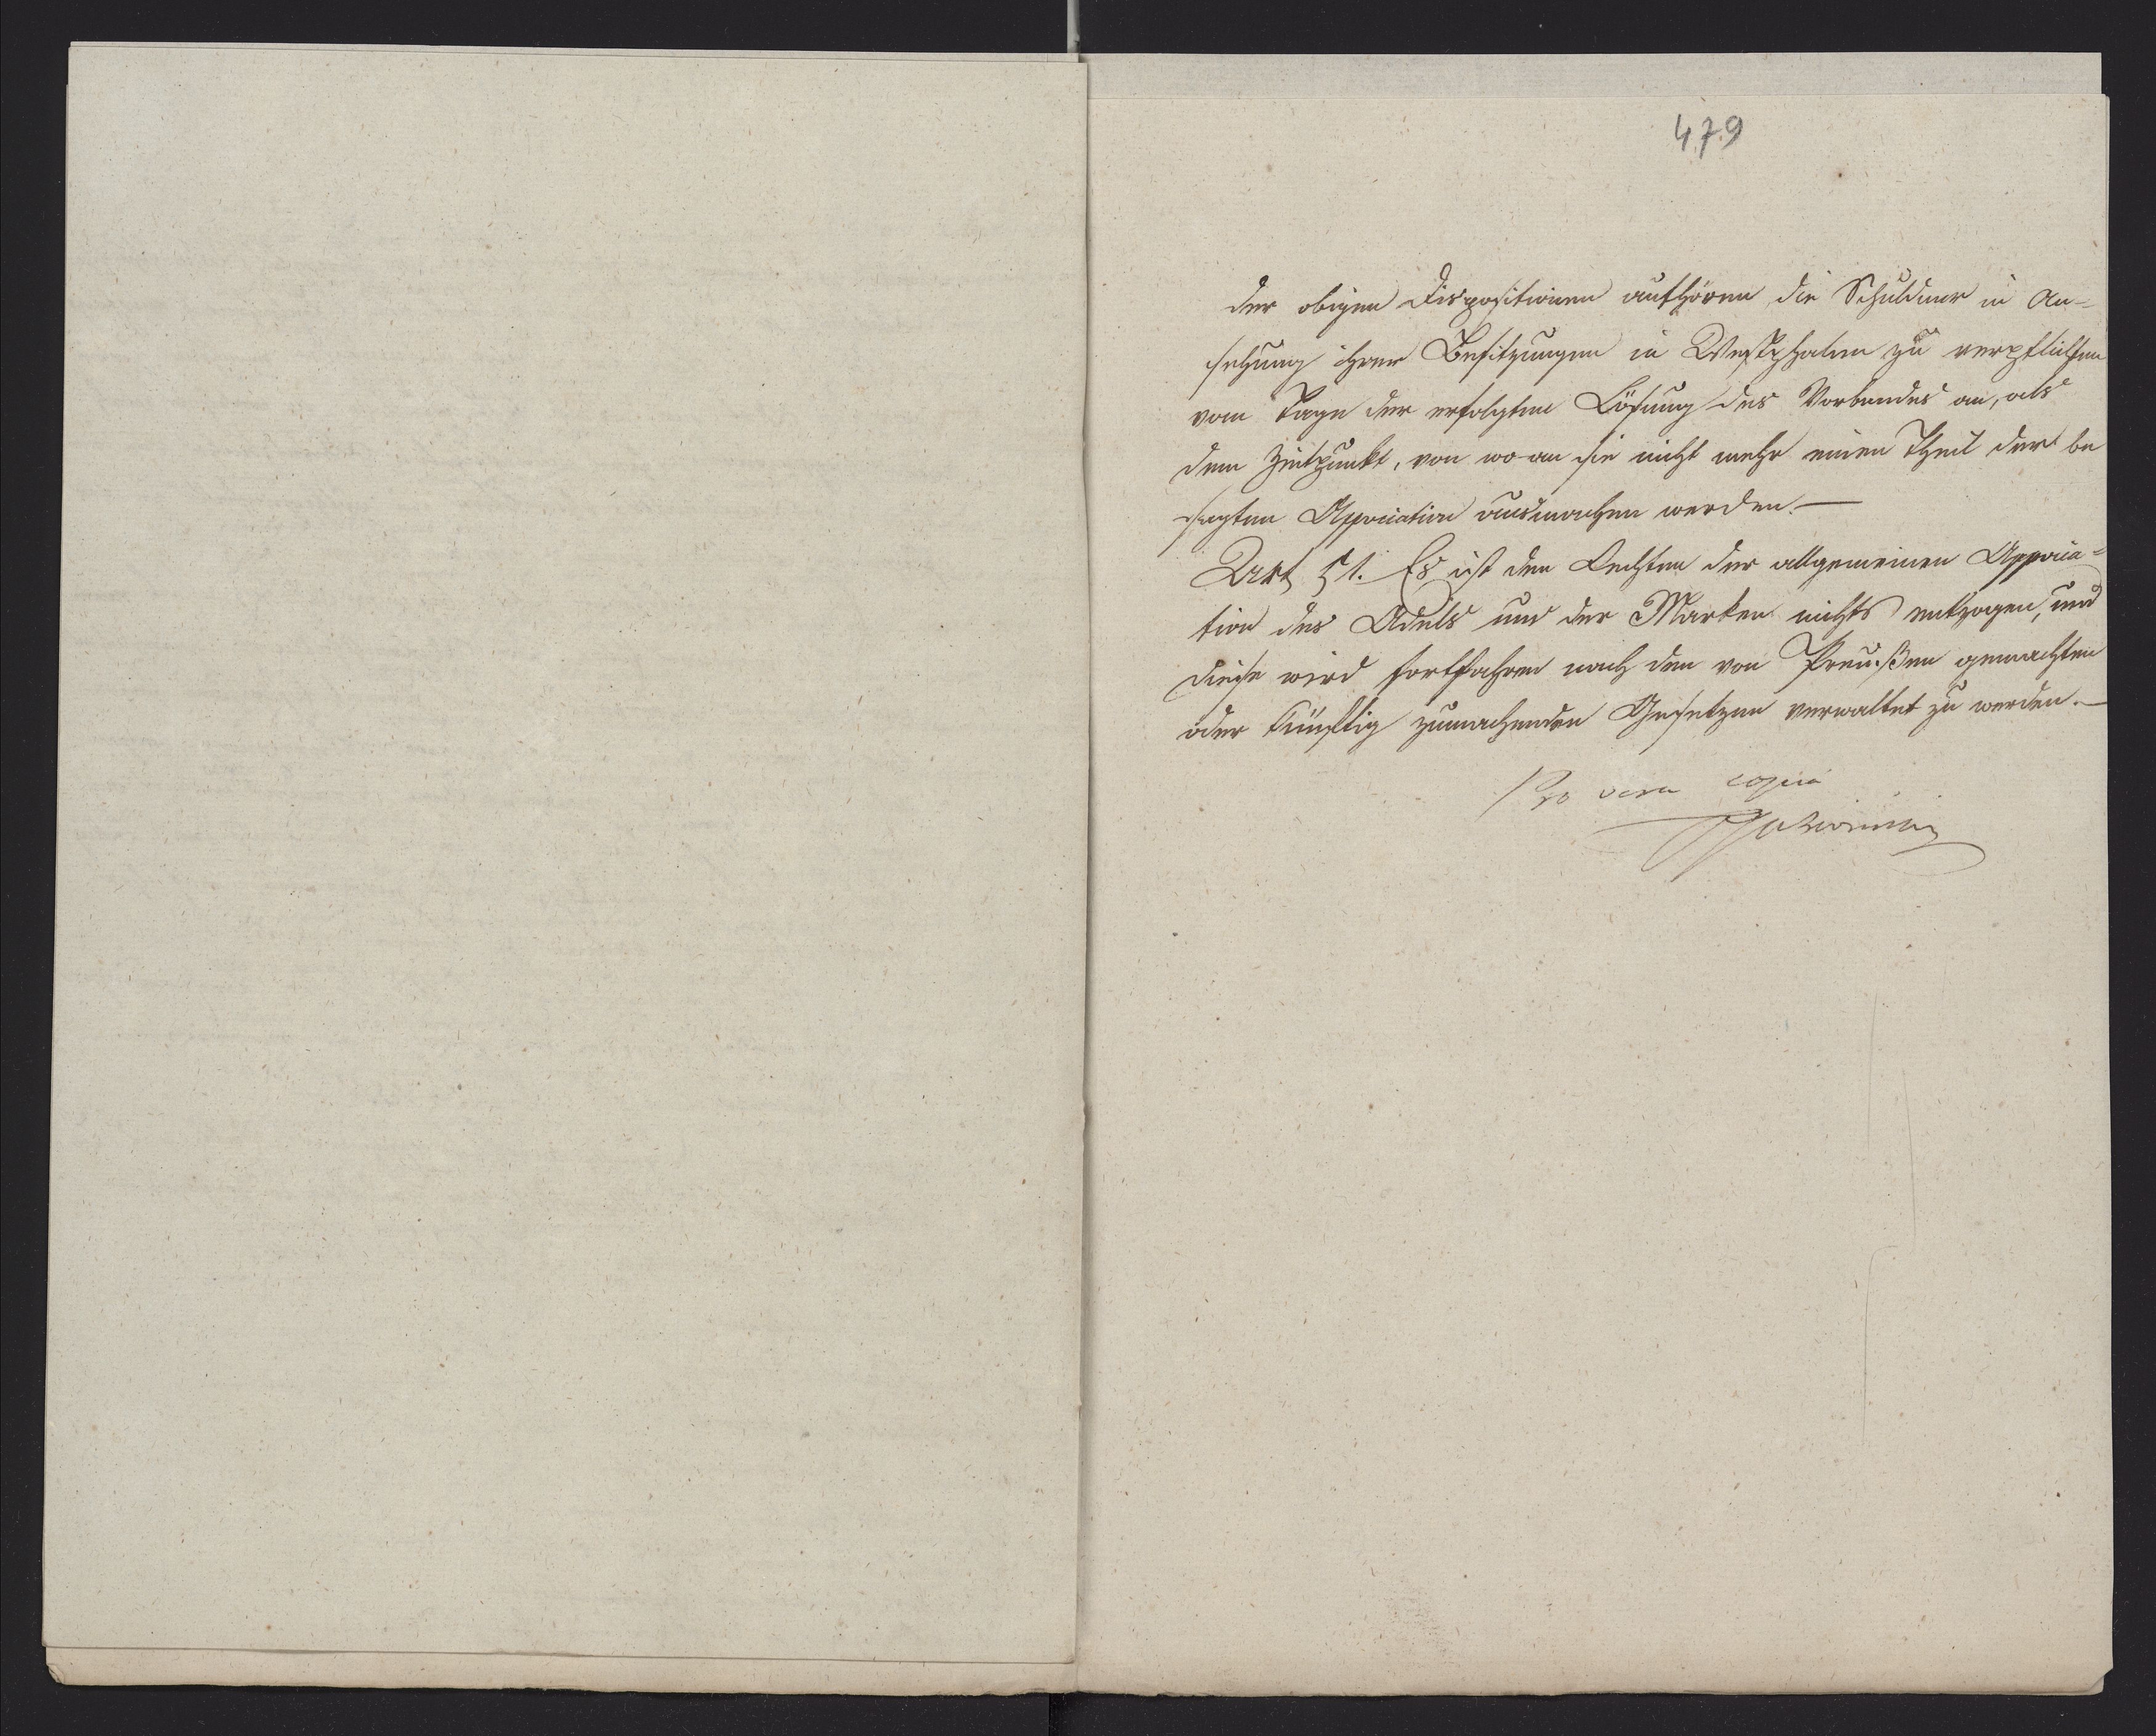 479
der obigen Dispositionen aufhören die Schuldner in An-
sehung ihrer Besitzungen in Westphalen zu verpflichten
vom Tage der erfolgten Lösung des Verbandes an, als
dem Zeitpunkt, von wo an sie nicht mehr einen Theil der be
sagten Association ausmachen werden.—
Art 51. Es ist den Rechten der allgemeinen Associa-
tion des Adels und der Marken nichts entzogen, und
diese wird fortfahren nach den von Preußen gemachten
oder künftig zumachenden Gesetzen verwaltet zu werden.—
Pro vera copia